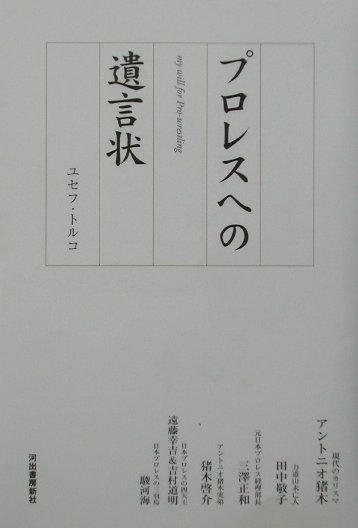 プロレスへの
遺言状
my will for Pro-wrestling
ユセフ・トルコ
現代のカリスマ
アントニオ猪木
力道山未亡人
田中敬子
元日本プロレス経理部長
三澤正和
アントニオ猪木実弟
猪木啓介
日本プロレスの四天王
遠藤幸吉&吉村道明
日本プロレスの三羽烏
駿河海
河出書房新社